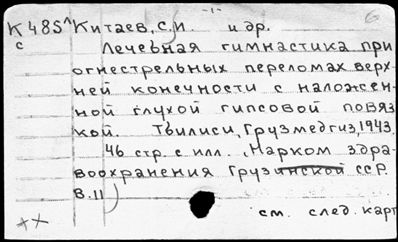 -1-
К485^ Китаев, С.И. и др.
с Лечебная гимнастика при
огнестрельных переломах верх-
ней конечности с наложен-
ной глухой гипсовой повяз
кой. Тбилиси, Грузмедгиз, 1943.
46 стр. с илл. (Нарком. здра-
воохранения Грузинской ССР.
В.11)
см. след. карт